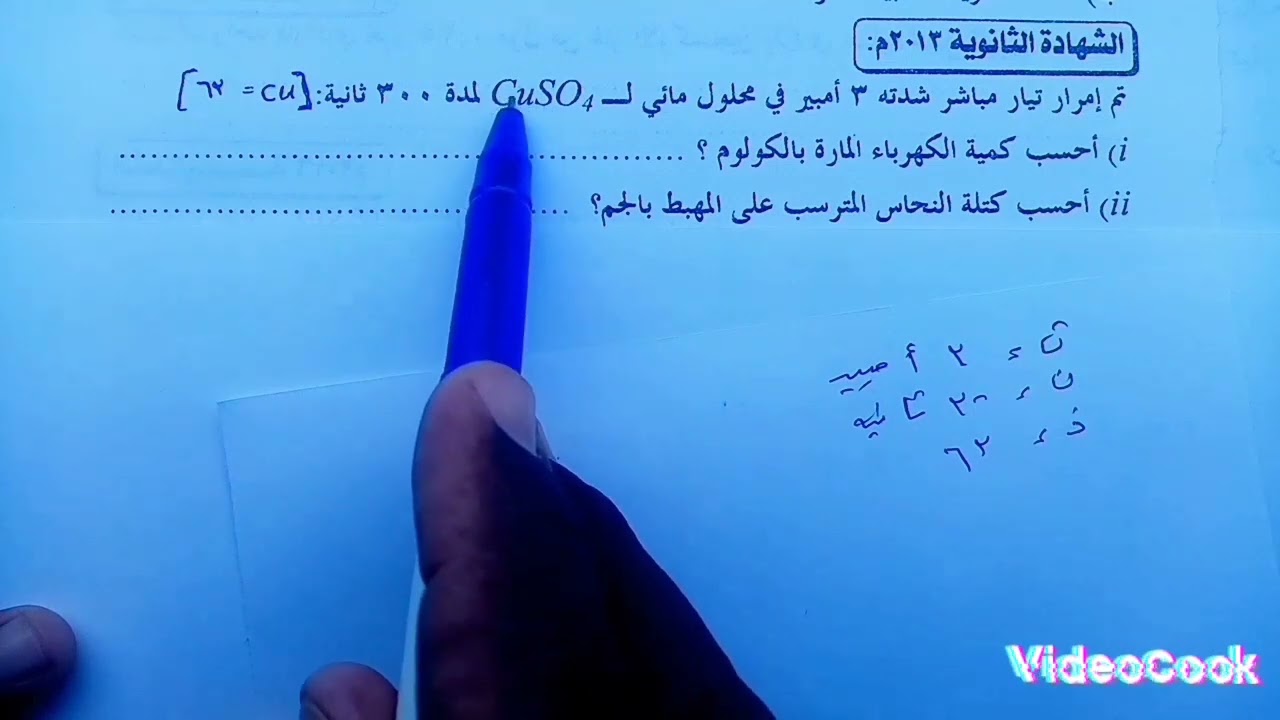 الشهادة الثانوية ٢٠١٣م:
تم إمرار تيار مباشر شدته ٣ أمبير في محلول مائي لـ CuSO4 لمدة ٣٠٠ ثانية: [CU = ٦٣]
i) أحسب كمية الكهرباء المارة بالكولوم ؟ ........................
ii) أحسب كتلة النحاس المترسب على المهبط بالجم؟ ........................
ت = ٣ أمبير
ن = ٣٠٠ ثانيه
ذ = ٦٣
VideoCook